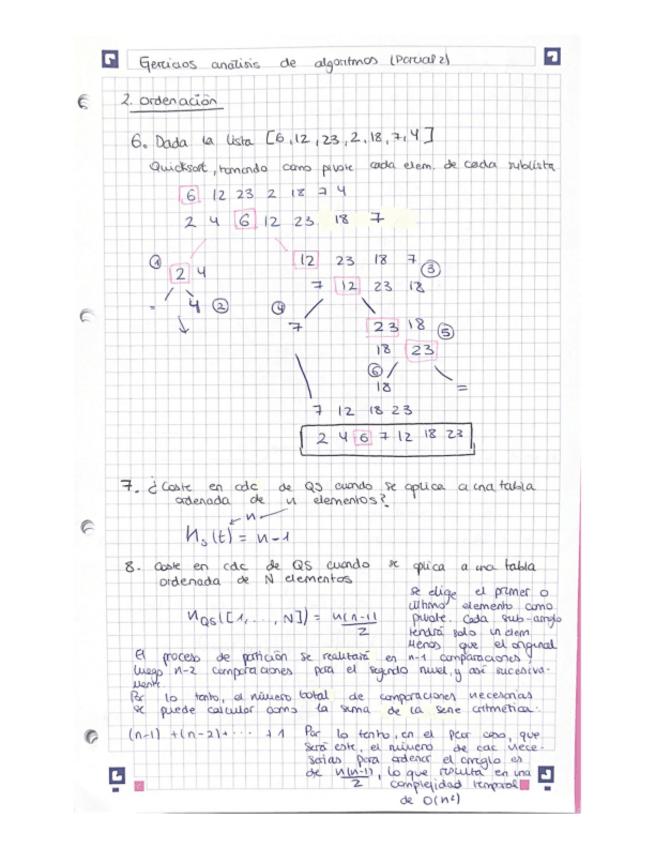 Ejercicios análisis de algoritmos (Parcial 2)
2. Ordenación
6. Dada la lista [6, 12, 23, 2, 18, 7, 4]
Quicksort, tomando como pivote cada elem. de cada sublista
6 12 23 2 18 7 4
2 4 6 12 23 18 7
① 2 4
12 23 18 7 ③
7 12 23 18
= 4 ②
④ 7
23 18 ⑤
18 23
⑥ 18 =
7 12 18 23
2 4 6 7 12 18 23
7. ¿Coste en cdc de QS cuando se aplica a una tabla
ordenada de n elementos?
n
ns(t) = n-1
8. Coste en cdc de QS cuando se aplica a una tabla
ordenada de N elementos
nQS([1, ..., N]) = n(n-1)/2
se elige el primer o
último elemento como
pivote. Cada sub-arreglo
tendrá solo un elem.
menos que el original
El proceso de partición se realizará en n-1 comparaciones
luego n-2 comparaciones para el segundo nivel, y así sucesiva-
mente.
Por lo tanto, el número total de comparaciones necesarias
se puede calcular como la suma de la serie aritmética.
(n-1) + (n-2) + ... + 1
Por lo tanto, en el peor caso, que
será este, el número de cdc nece-
sarias para ordenar el arreglo es
de n(n-1)/2, lo que resulta en una
complejidad temporal
de O(n²)